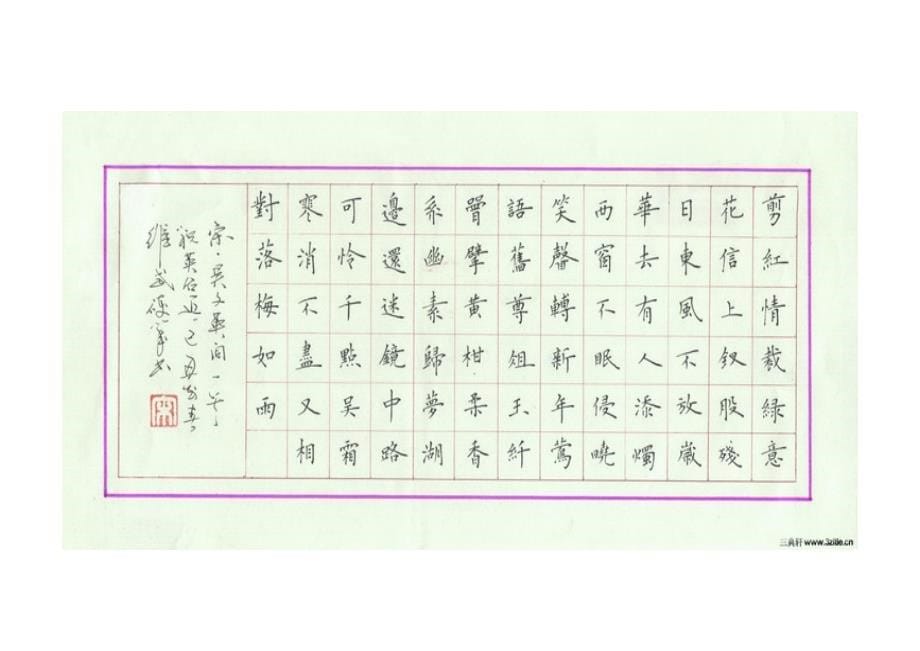 剪紅情裁綠意
花信上釵股殘
日東風不放歲
華去有人添燭
西窗不眠侵曉
笑聲轉新年鶯
語舊尊俎玉纖
曾擘黃柑柔香
系幽素歸夢湖
邊還迷鏡中路
可怜千點吳霜
寒消不盡又相
對落梅如雨
宋·吳文英詞一首
祝英台近 己丑
維武硬筆書
三典轩 www.3zitie.cn